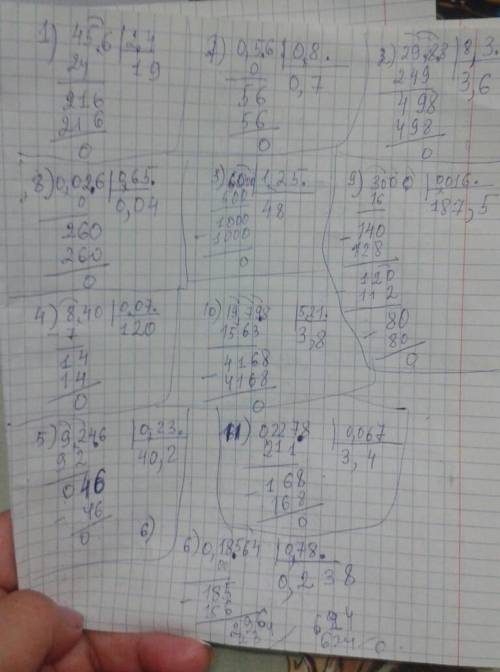 1) 45,6 | 2,4
24 19
216
216
0
7) 0,5,6 | 0,8.
0 0,7
56
56
0
2) 29,8,8 | 8,3.
249 3,6
498
498
0
8) 0,02,6 | 0,65.
0 0,04
260
260
0
6000 | 1,25.
500 48
1000
- 1000
0
9) 3000 | 0,016.
16 187,5
- 140
128
- 120
112
- 80
80
0
4) 8,40 | 0,07.
- 7 120
14
14
0
10) 19,798 | 5,21.
1563 3,8
- 4168
4168
0
5) 9,24,6 | 0,23.
92 40,2
046
- 46
0
6)
11) 0,227,8 | 0,067
211 3,4
- 168
168
0
6) 0,18,564 | 0,78.
00 0,238
- 185
156
624
624 0